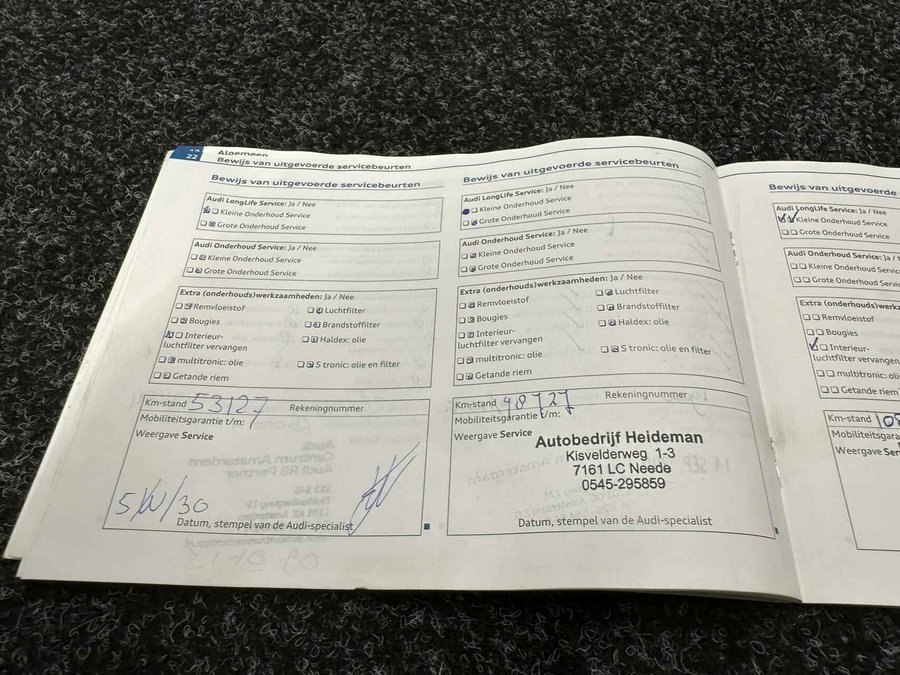 22
Algemeen
Bewijs van uitgevoerde servicebeurten
Bewijs van uitgevoerde servicebeurten
Audi LongLife Service: Ja / Nee
Kleine Onderhoud Service
Grote Onderhoud Service
Audi Onderhoud Service: Ja / Nee
Kleine Onderhoud Service
Grote Onderhoud Service
Extra (onderhouds)werkzaamheden: Ja / Nee
Remvloeistof Luchtfilter
Bougies Brandstoffilter
Interieur- Haldex: olie
luchtfilter vervangen
multitronic: olie S tronic: olie en filter
Getande riem
Km-stand 53127 Rekeningnummer
Mobiliteitsgarantie t/m:
Weergave Service
Datum, stempel van de Audi-specialist
Bewijs van uitgevoerde servicebeurten
Audi LongLife Service: Ja / Nee
Kleine Onderhoud Service
Grote Onderhoud Service
Audi Onderhoud Service: Ja / Nee
Kleine Onderhoud Service
Grote Onderhoud Service
Extra (onderhouds)werkzaamheden: Ja / Nee
Remvloeistof Luchtfilter
Bougies Brandstoffilter
Interieur- Haldex: olie
luchtfilter vervangen
multitronic: olie S tronic: olie en filter
Getande riem
Km-stand 98727 Rekeningnummer
Mobiliteitsgarantie t/m:
Weergave Service
Autobedrijf Heideman
Kisvelderweg 1-3
7161 LC Neede
0545-295859
Datum, stempel van de Audi-specialist
Bewijs van uitgevoerde
Audi LongLife Service: Ja / Nee
Kleine Onderhoud Service
Grote Onderhoud Service
Audi Onderhoud Service: Ja /
Kleine Onderhoud Service
Grote Onderhoud
Extra (onderhouds)werkza
Remvloeistof
Bougies
Interieur-
luchtfilter vervangen
multitronic: olie
Getande riem
Km-stand
Mobiliteitsgara
Weergave Ser